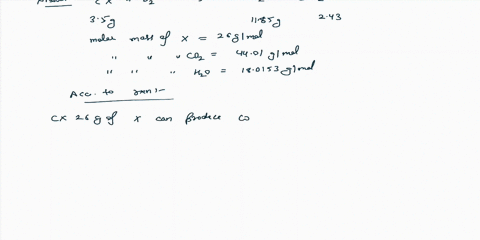 3.5g 11.85g 2.43
molar mass of x = 26 g/mol
" " " CO2 = 44.01 g/mol
" " " H2O = 18.0153 g/mol
Acc. to rxn:-
CX 26 g of x can produce CO